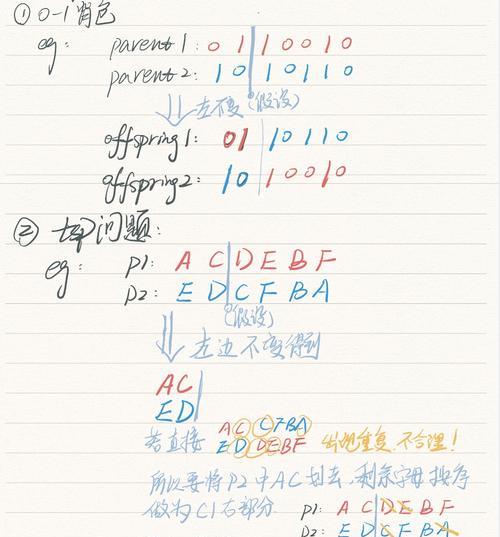 ① 0-1背包
eg: parent 1: 0 1 1 0 0 1 0
parent 2: 1 0 1 0 1 1 0
左不变(假设)
offspring 1: 0 1 1 0 1 1 0
offspring 2: 1 0 1 0 0 1 0
② tsp问题:
eg: P1: A C D E B F
P2: E D C F B A
(假设)
左边不变得到
AC
ED
若直接 AC CFBA
ED DEBF 出现重复,不合理!
所以要将P2中AC划去,剩余字母按序
做为C1右部分
P1: A C D E B F
P2: E D C F B A